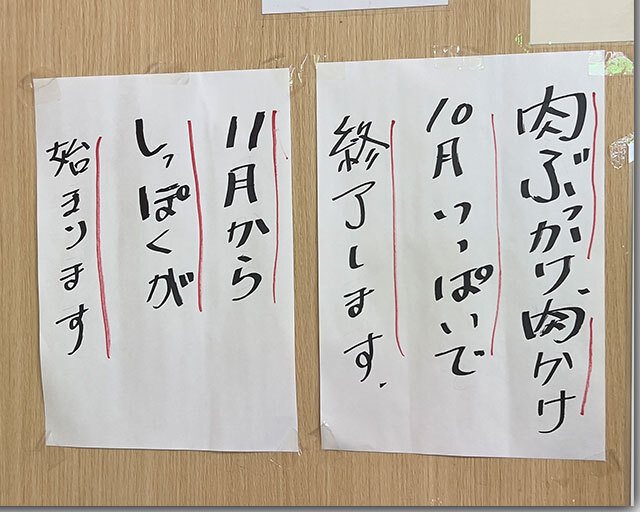 肉ぶっかけ、肉かけ
10月いっぱいで
終了します.
11月から
しっぽくが
始まります